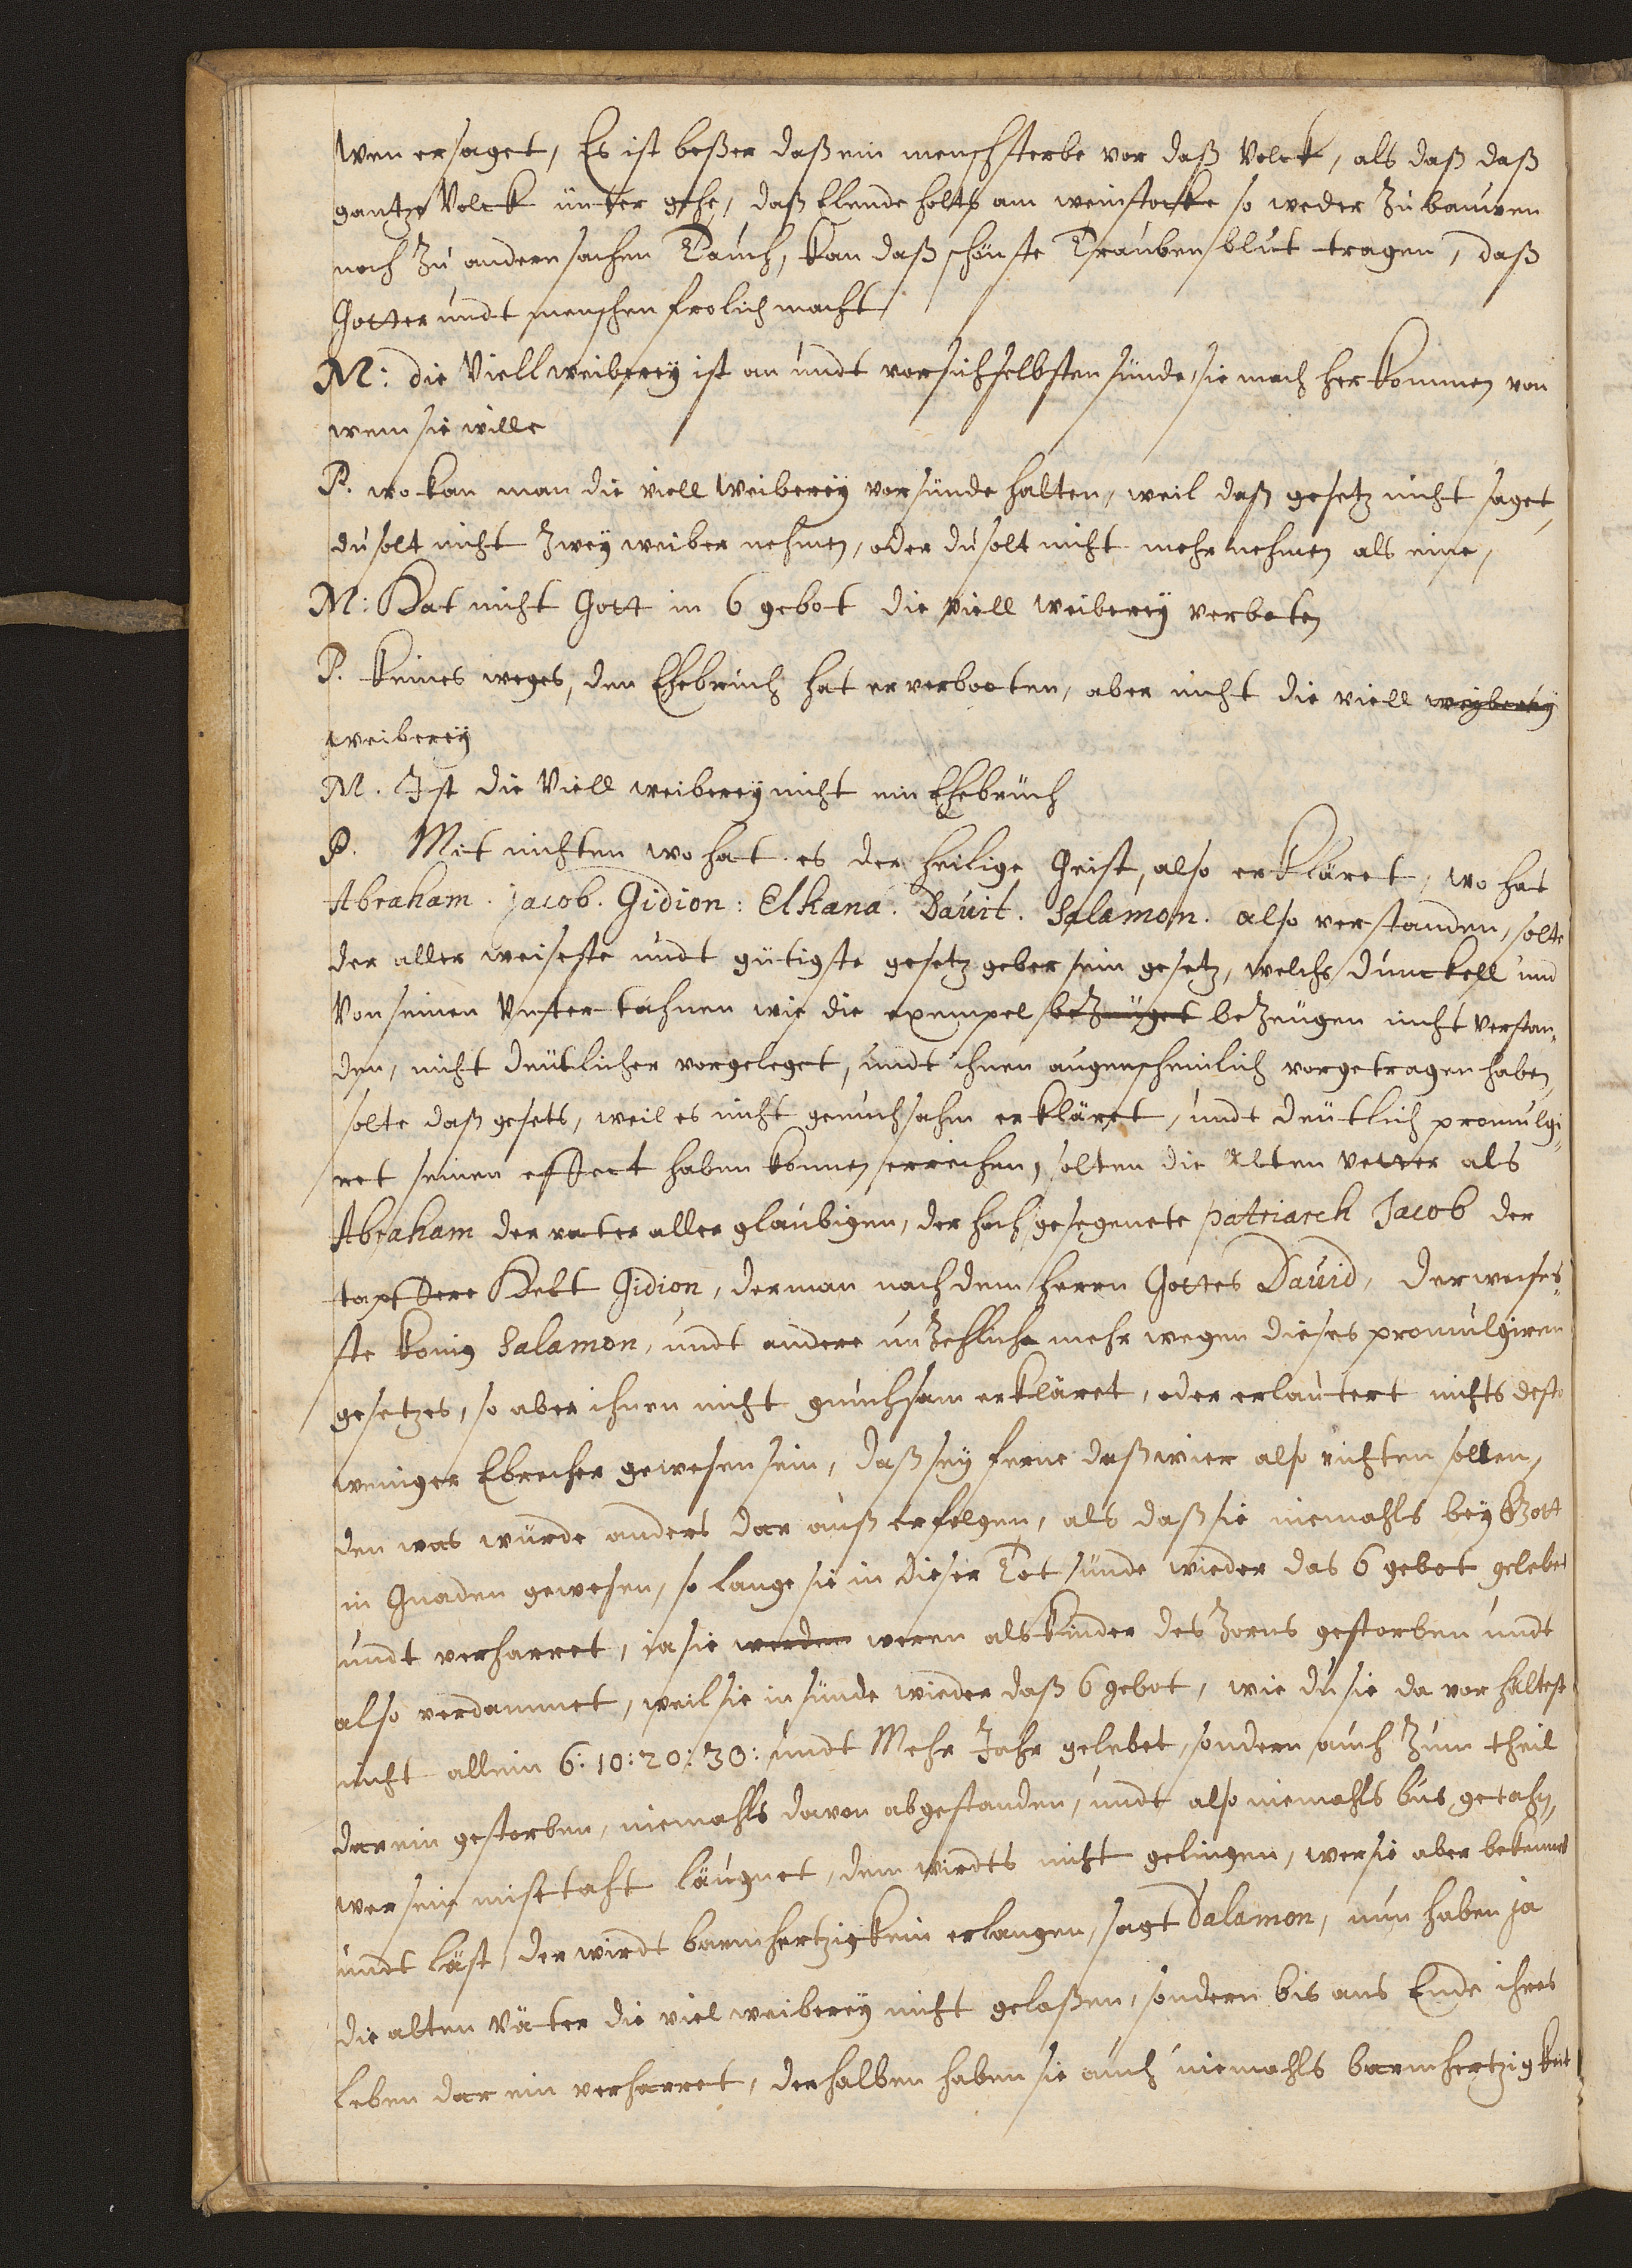 wen er saget, Es ist beßer daß ein mensch sterbe vor daß Volck, als daß daß
gantze Volck unter gehe, daß Elende holtz am weinstocke so weder Zu bauwen
noch Zu andern sachen Tauch, kan daß schönste Traubenblut tragen, daß
Gotter undt menschen frolich macht
M: die Viellweiberey ist an undt vor sich selbsten sünde, sie mach her kommen von
wem sie wille
P. wo kan man die viell weiberey vor sünde halten, weil daß gesetz nicht saget,
du solt nicht Zwey weiber nehmen, oder du solt nicht mehr nehmen als eine,
M: Hat nicht Gott in 6 gebot die viell weiberey verboten
P. Keines weges, den Ehebruch hat er verbooten, aber nicht die viell weyberey
weiberey
M. Ist die Viell weiberey nicht ein Ehebruch
P. Mit nichten wo hat es der heilige Geist, also erkläret, wo hat
Abraham. jacob. Gidion: Elkana. Dauit. Salamon. also verstanden, solte
der aller weiseste undt gütigste gesetz geber sein gesetz, welchs dunckell und
Von seinen Unter tahnen wie die exempel bezeuget beZeugen nicht verstan„
den, nicht deutlicher vorgeleget, undt ihnen augenscheinlich vorgetragen haben,
solte daß gesets, weil es nicht genuchsahm erkläret, undt deutlich promulgi„
ret seinen effect haben konnen erreichen, solten die Alten Vetter als
Abraham der vater aller glaubigen, der hoch gesegenete patriarch Jacob der
tapffere Helt Gidion, der man nach dem herrn Gottes Dauid, der weises„
ste konig Salamon, undt andere unZehliche mehr wegen dieses promulgiren
gesetzes, so aber ihnen nicht gnuchsam erkläret, oder erlautert nichts desto
weniger Ebrecher gewesen sein, daß sey ferne daß wier also richten sollen,
den was würde anders dar auß erfolgen, als daß sie niemahls bey Gott
in Gnaden gewesen, so lange sie in dieser Tot sünde wieder das 6 gebot gelebet
undt verharret, ja sie werden weren als Kinder des Zorns gestorben undt
also verdammet, weil sie in sünde wieder daß 6 gebot, wie du sie da vor haltest
nicht allein 6: 10: 20: 30: undt Mehr Jahr gelebet, sondern auch Zum theil
darein gestorben, niemahls davon abgestanden, undt also niemahls bus getahn,
wer sein missetaht läugnet, dem wirdts nicht gelingen, wer sie aber bekennet
undt läst, der wirdt barmhertzigkein erlangen, sagt Salamon, nun haben ja
die alten Väter die viel weiberey nicht gelaßen, sondern bis ans Ende ihres
Leben dar ein verharret, derhalben haben sie auch niemahls barmhertzigkeit